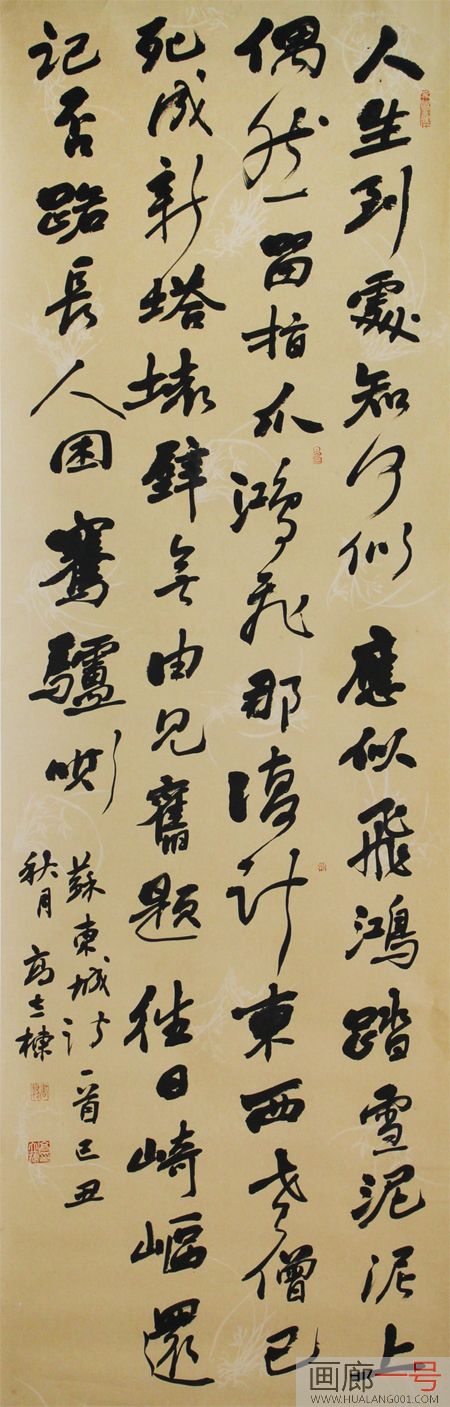 人生到處知何似應似飛鴻踏雪泥泥上
偶然一留指爪鴻飛那復計東西老僧已
死成新塔壞壁無由見舊題往日崎嶇還
記否路長人困蹇驢嘶
蘇東城詩一首己丑
秋月 高士棟
画廊一号
WWW.HUALANG001.COM